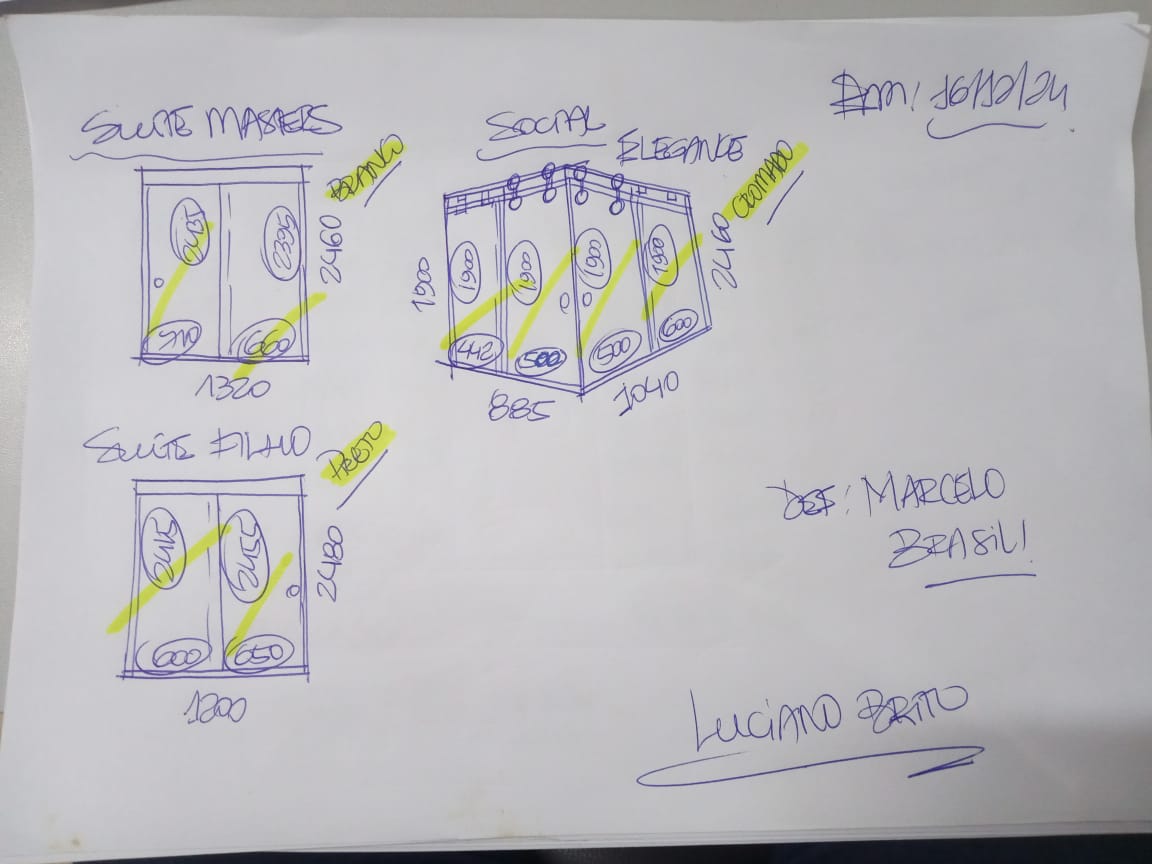 SUITE MASTERS
BRANCO
2435
2395
2460
660
1320
SOCIAL
ELEGANCE
CROMADO
1900
1900
1900
1900
1900
2460
442
500
500
600
885
1040
16/12/24
SUITE FILHO
PRETO
2415
2455
2480
600
650
1200
MARCELO
BRASIL!
LUCIANO BRITO